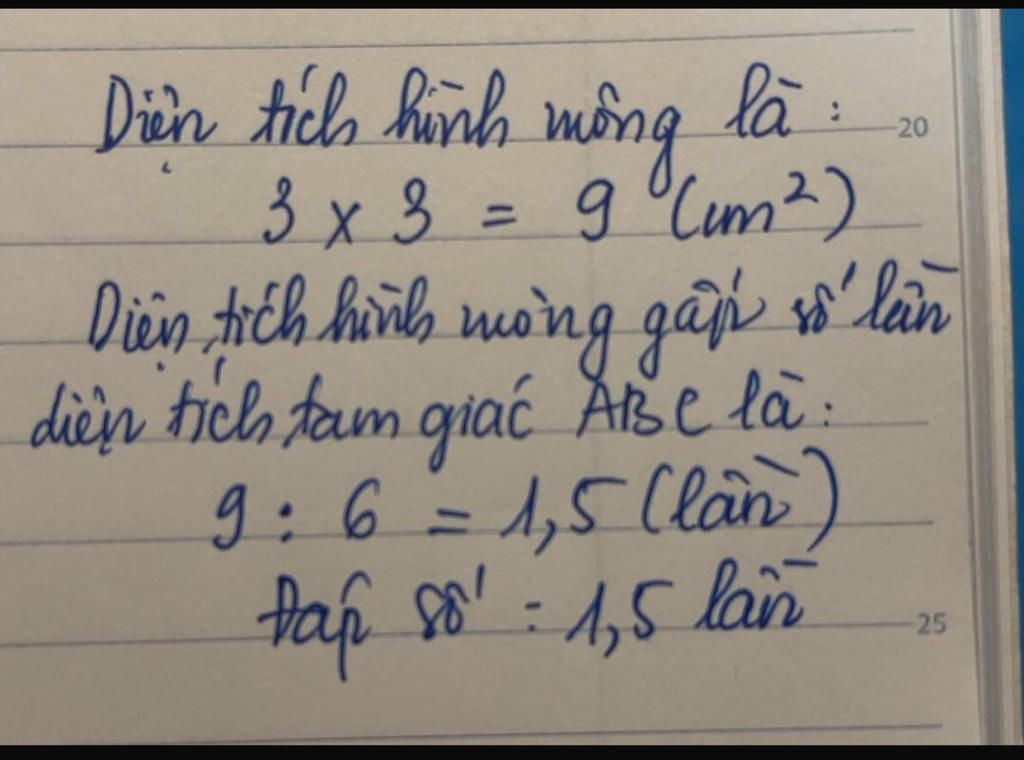 Diện tích hình mông là :
20
3 x 3 = 9 (cm²)
Diện tích hình mòng gấp số lần
diện tích tam giác ABC là :
9 : 6 = 1,5 (lần)
Đáp số : 1,5 lần
25